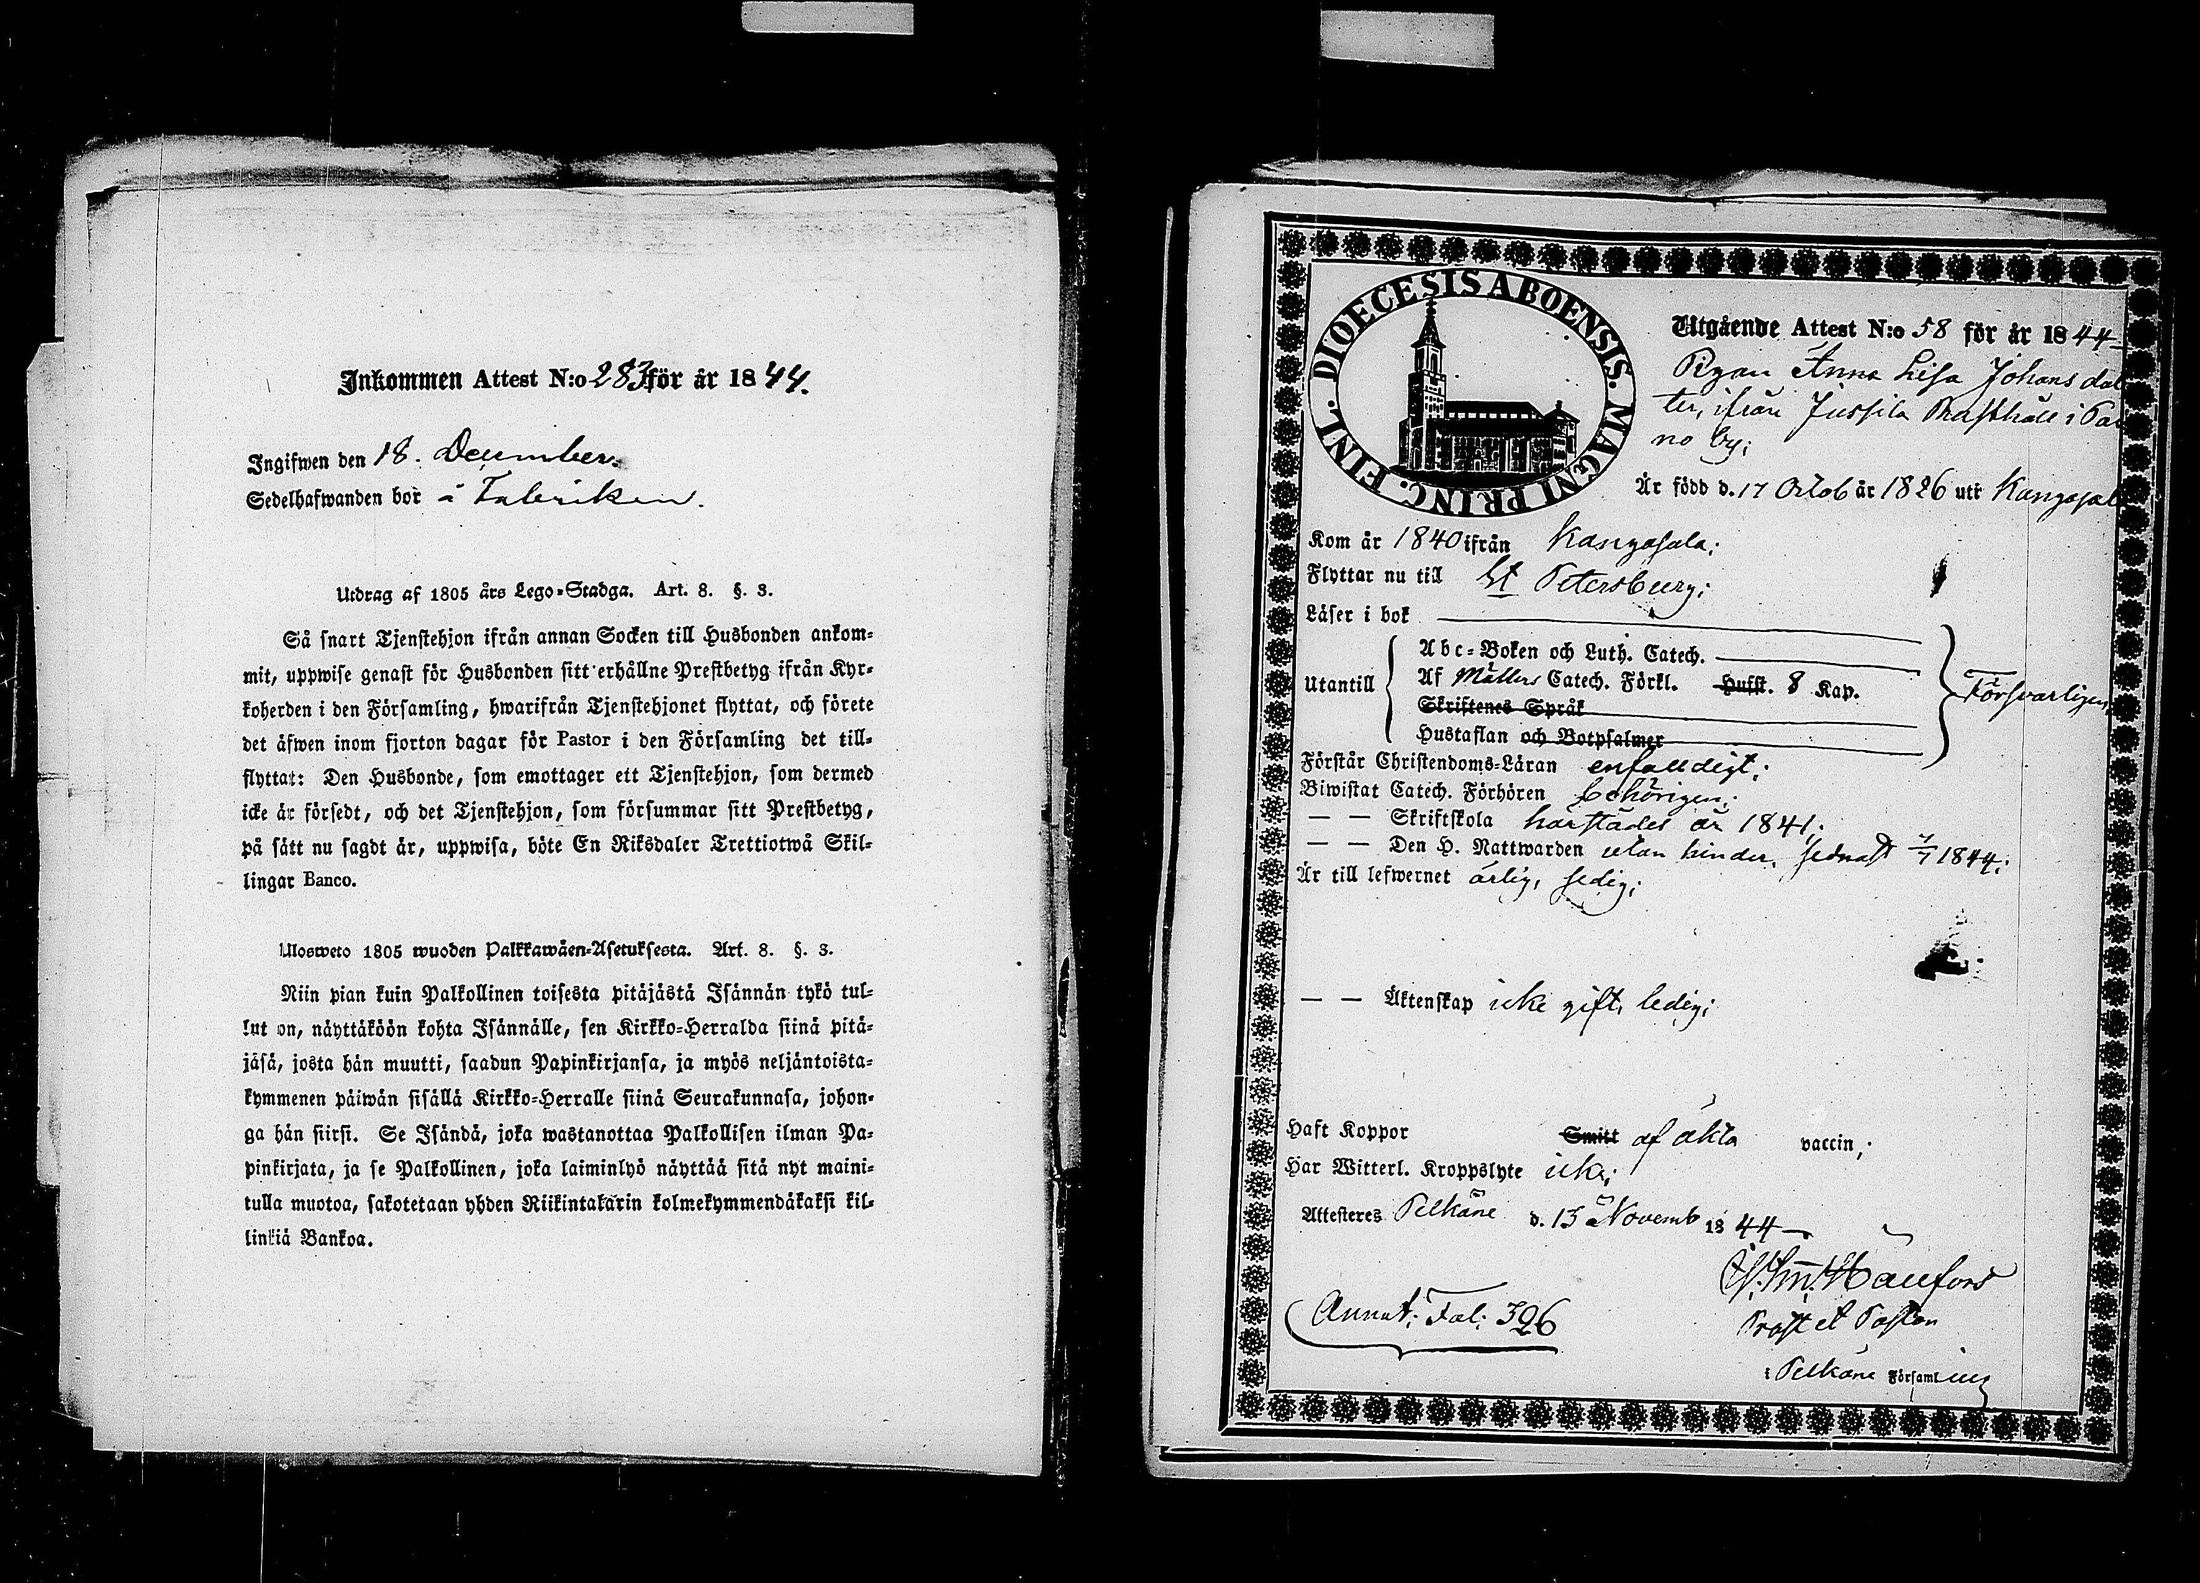 Inkommen Attest N:o 283 för år 1844.
Ingifwen den 18. December.
Sedelhafwanden bor å Fabriken.
Utdrag af 1805 års Lego-Stadga. Art. 8. §. 3.
Så snart Tjenstehjon ifrån annan Socken till Husbonden ankom-
mit, uppwise genast för Husbonden sitt erhållne Prestbetyg ifrån Kyr-
koherden i den Församling, hwarifrån Tjenstehjonet flyttat, och förete
det äfwen inom fjorton dagar för Pastor i den Församling det till-
flyttat: Den Husbonde, som emottager ett Tjenstehjon, som dermed
icke är försedt, och det Tjenstehjon, som försummar sitt Prestbetyg,
på sätt nu sagdt är, uppwisa, böte En Riksdaler Trettiotwå Skil-
lingar Banco.
Ulosweto 1805 wuoden Palkkawäen-Asetuksesta. Art. 8. §. 3.
Niin pian kuin Palkollinen toisesta pitäjästä Isännän tykö tul-
lut on, näyttäköön kohta Isännälle, sen Kirkko-Herralda siinä pitä-
jäsä, josta hän muutti, saadun Papinkirjansa, ja myös neljäntoista-
kymmenen päiwän sisällä Kirkko-Herralle siinä Seurakunnasa, johon-
ga hän siirsi. Se Isändä, joka wastanottaa Palkollisen ilman Pa-
pinkirjata, ja se Palkollinen, joka laiminlyö näyttää sitä nyt maini-
tulla muotoa, sakotetaan yhden Riikintalarin kolmekymmendäkaksi kil-
linkiä Bankoa.
DIOECESIS ABOENSIS. MAGNI PRINC. FINL.
Utgående Attest N:o 58 för år 1844
Pigan Anna Lisa Johans dot
ter, ifrån Jussila Rusthåll i
no by;
Är född d. 17 Octob år 1826 uti Kangasal
Kom år 1840 ifrån Kangasala;
Flyttar nu till St Petersburg;
Läser i bok
Utantill
Abc-Boken och Luth. Catech.
Af Möllers Catech. Förkl. Hufst. 8 Kap.
Skriftenes Språk
Hustaflan och Botpsalmer
Försvarligen
Förstår Christendoms-Läran enfaldigt;
Biwistat Catech. Förhören behörigen;
— — Skriftskola härstädes år 1841;
— — Den H. Nattwarden utan hinder, sednast 7/7 1844;
Är till lefwernet ärlig, sedig;
— — Äktenskap icke gift, ledig;
Haft Koppor Smitt af äkta vaccin;
Har Witterl. Kroppslyte icke;
Attesteres Pelkäne d. 13 Novemb 1844
Prost et Pastor
i Pelkäne Församling
Annot: Fol: 326